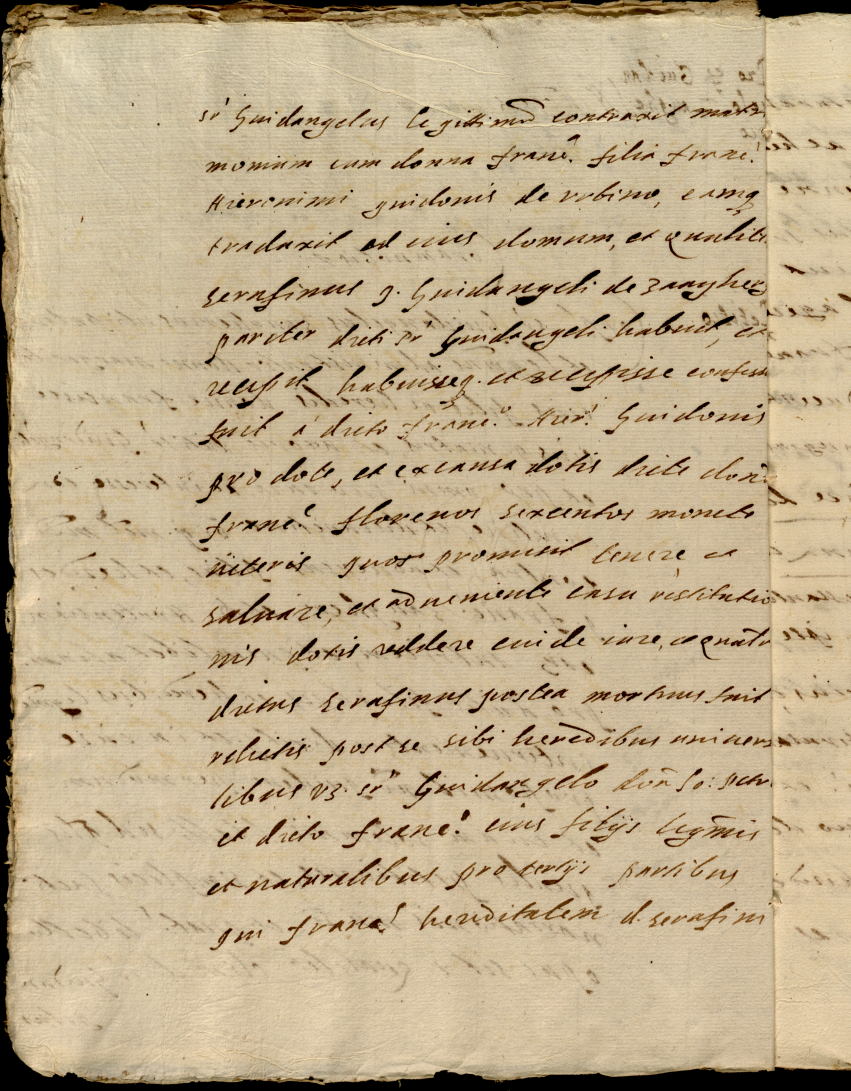 sr Guidangelus legittime contraxit matri
monium cum donna franc.a filia franc.i
Hieronimi guidonis de vrbino, eamq
traduxit ad eius domum, et qualit.
serafinus q. Guidangeli de
pariter dicti sr Guidangeli habuit, et
recepit habuisseq. et recepisse confess
fuit à dicto franc.o Hier.i Guidonis
pro dote, et ex causa dotis dicte don.
franc.e florenos sexcentos monete
veteris quos promisit tenere et
saluare, et adueniente casu restitutio
nis dotis reddere cui de iure, et qualr
dictus serafinus postea mortuus fuit
relictis post se sibi heredibus univers
libus vz. sr Guidangelo don
et dicto franc.o eius filijs legmis
et naturalibus pro tertijs partibus
qui franc.s hereditatem d. serafini